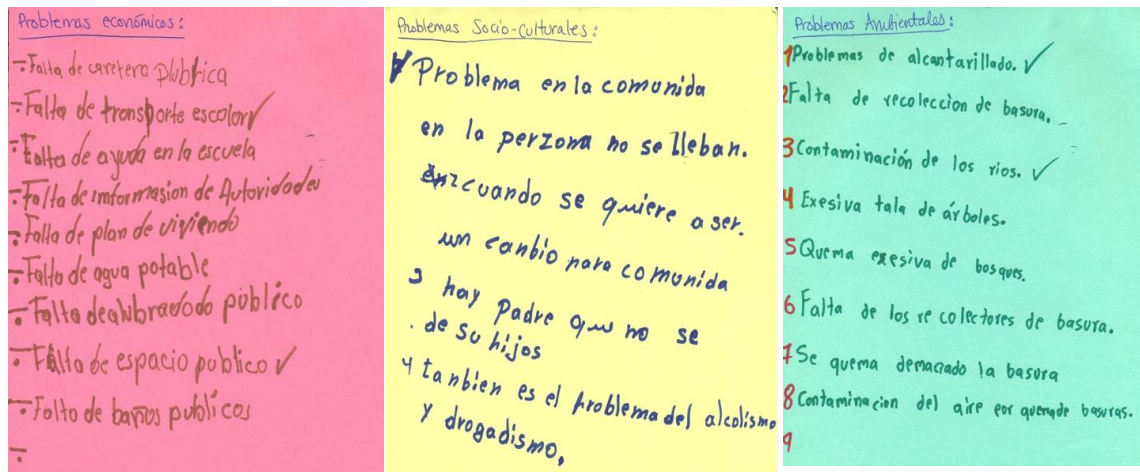 Problemas económicos:
-Falta de caretera publica
-Falta de transporte escolar✓
-Falta de ayuda en la escuela
-Falta de imformasion de Autoridades
-Falta de plan de viviendo
-Falta de agua potable
-Falta de alubradodo público
-Falta de espacio publico ✓
-Falta de baños publicos
-
Problemas Socio-culturales:
1 Problema en la comunida
en la perzona no se lleban.
2 cuando se quiere a ser.
un canbio para comunida
3 hay Padre que no se
. de su hijos
4 tanbien es el problema del alcolismo
y drogadismo,
Problemas Ambientales:
1 Problemas de alcantarillado. ✓
2 Falta de recoleccion de basura.
3 Contaminación de los rios. ✓
4 Exesiva tala de árboles.
5 Quema exesiva de bosques.
6 Falta de los re colectores de basura.
7 Se quema demaciado la basura
8 Contaminacion del aire por quemade basuras.
9